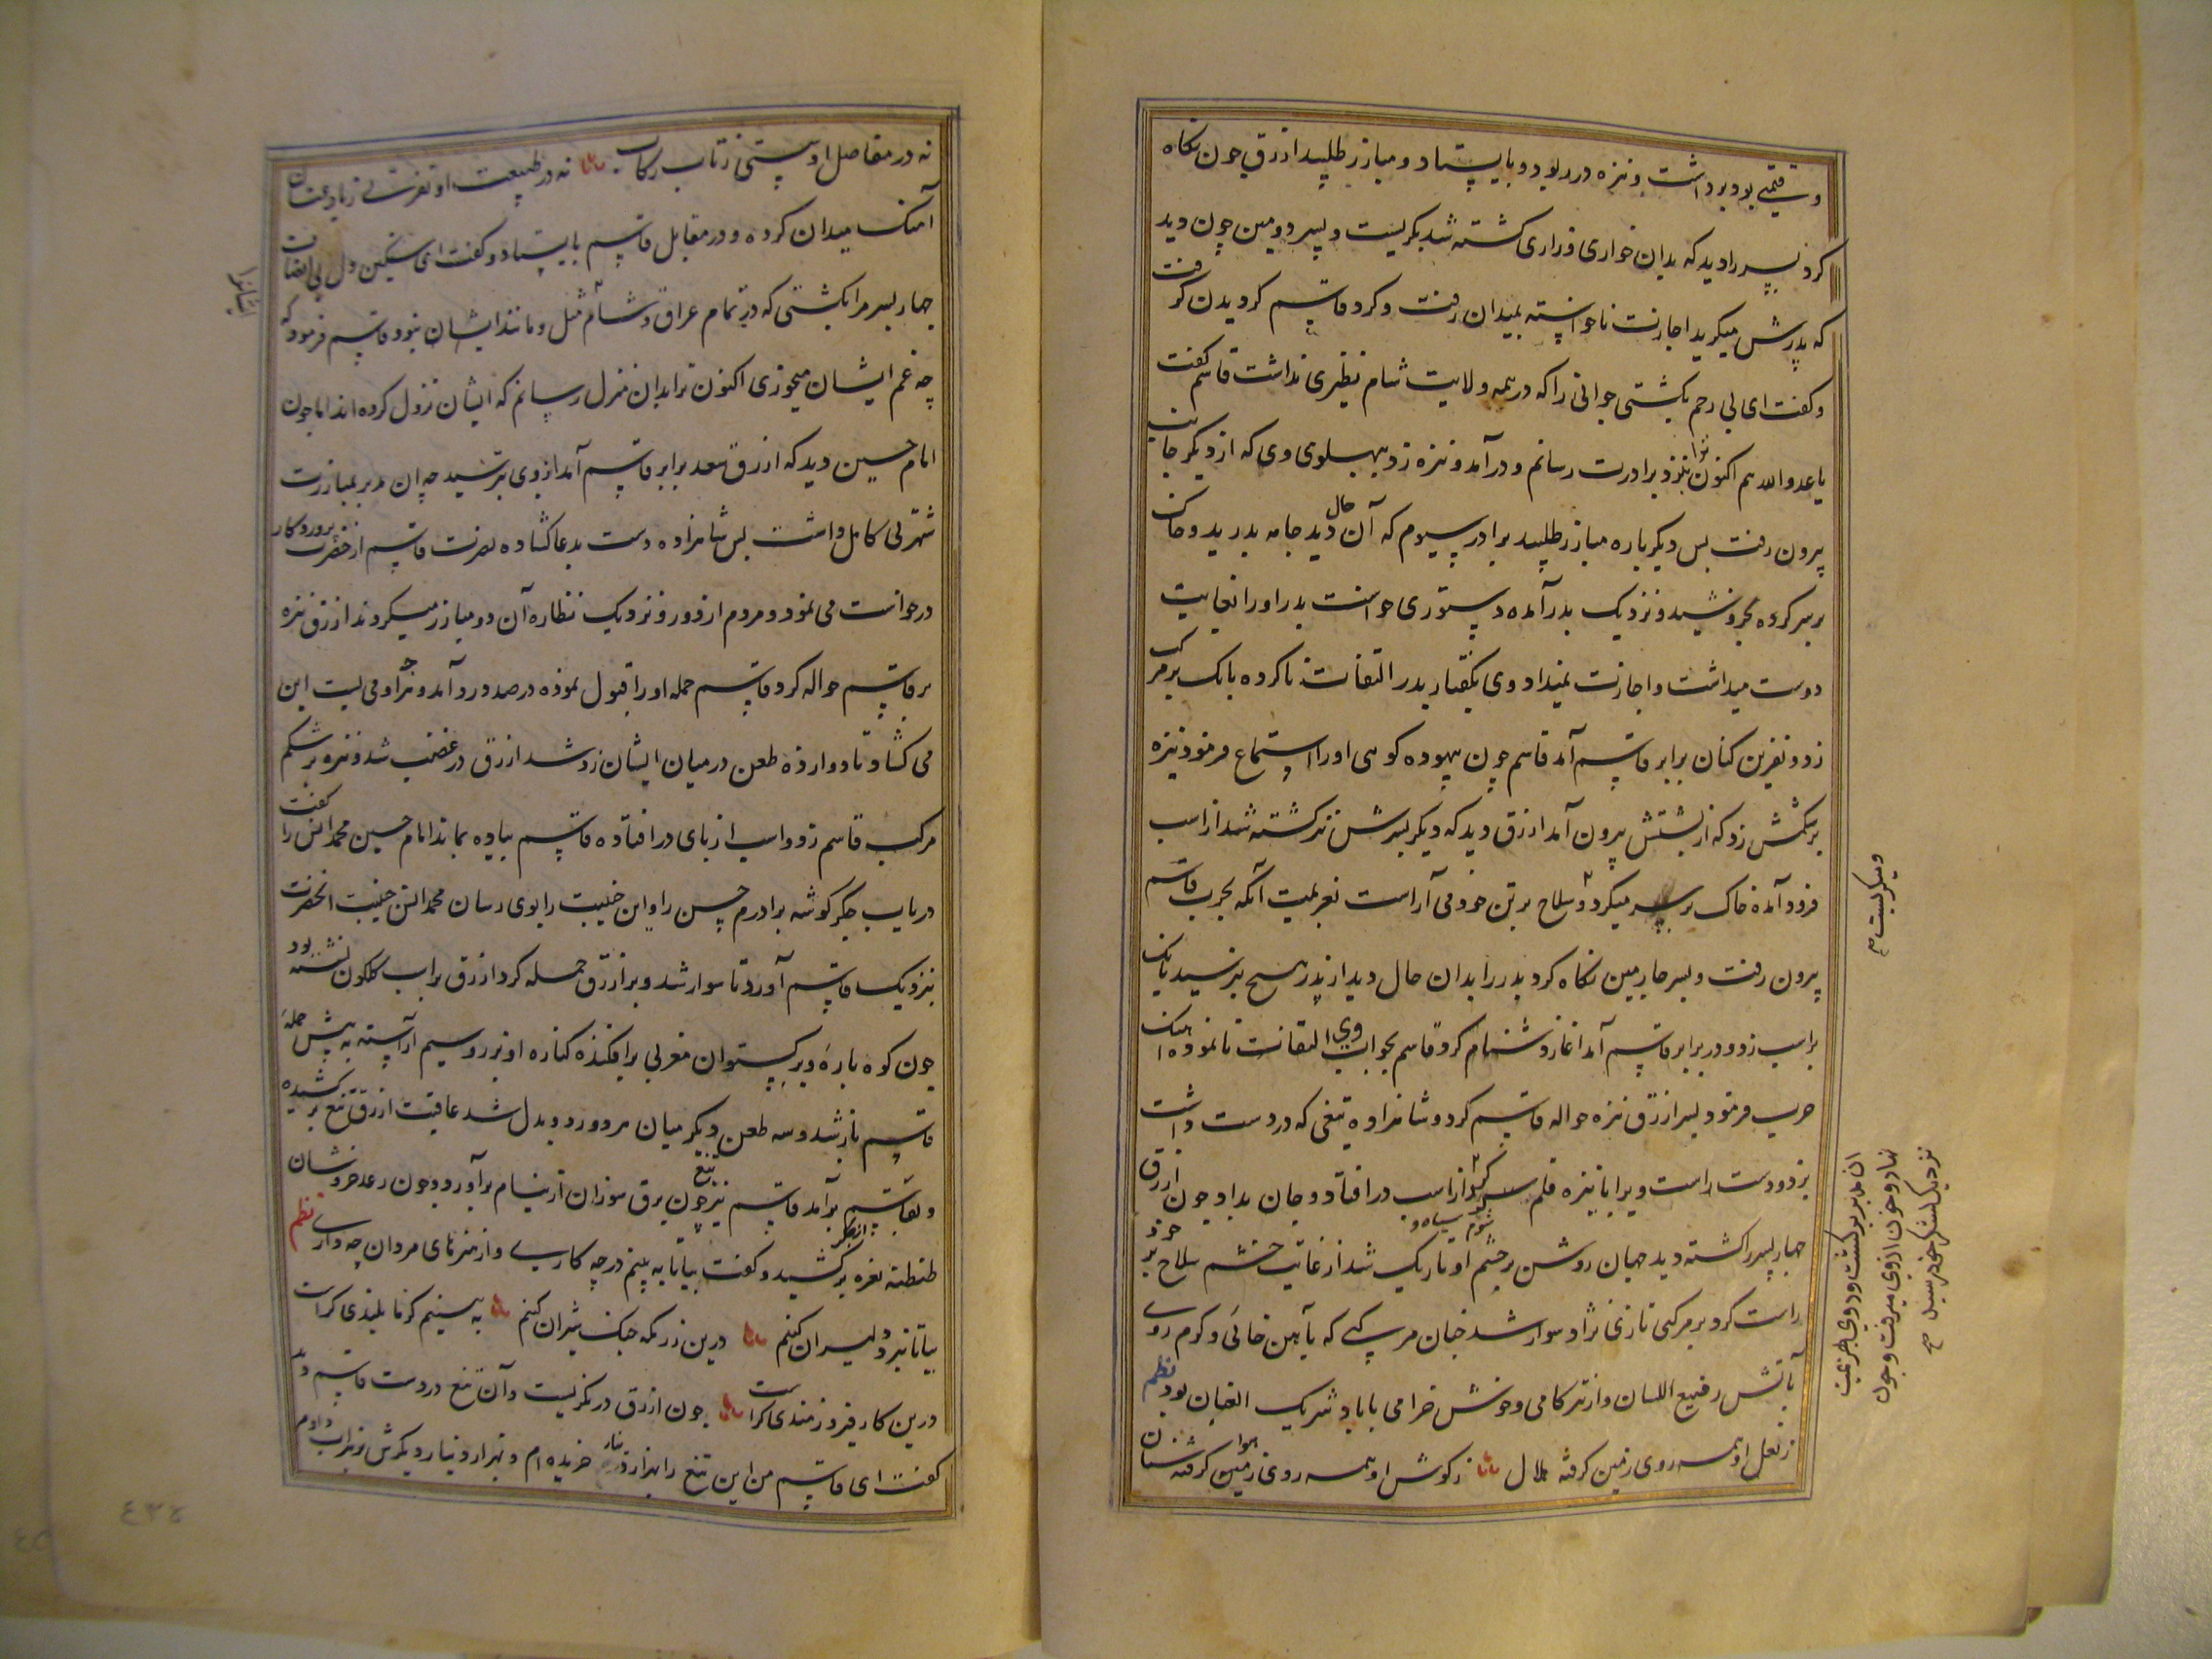 و قیمتی بود برداشت و نیزه در ربود و بایستاد و مبارز طلبید ازرق چون نکاه
کرد پسر را دید که بدان خواری و زاری کشته شد بکریست و پسر دومین چون دید
که پدرش میکرید اجازت ناخواسته بمیدان رفت و کرد قاسم کردیدن کرفت
و کفت ای بی رحم بکشتی جوانی را که در همه ولایت شام نظیری نداشت قاسم کفت
یا عدو الله هم اکنون ترا بنزد برادرت رسانم و درآمد و نیزه زد بپهلوی وی که از دیکر جانب
بیرون رفت پس دیکر باره مبارز طلبید برادر سیوم که آن حال دید جامه بدرید و خاک
بر سر کرده بخروشید و نزدیک پدر آمده دستوری خواست پدر او را بغایت
دوست میداشت و اجازت نمیداد وی بکفتار پدر التفات ناکرده بانک بر مرکب
زد و نفرین کنان برابر قاسم آمد قاسم چون بیهوده کوهی او را استماع فرمود نیزه
بر شکمش زد که از پشتش بیرون آمد ازرق دید که دیکر پسرش نیز کشته شد از اسب
فرود آمده خاک بر سر میکرد و سلاح بر تن خود می آراست بعزیمت آنکه بحرب قاسم
بیرون رفت و پسر چارمین نکاه کرد پدر را بدان حال دید از پدر هیچ نپرسید بانک
بر اسب زد و در برابر قاسم آمد آغاز دشنام کرد قاسم بجواب وی التفات نانموده آهنک
حرب فرمود پسر ازرق نیزه حواله قاسم کرد و شاهزاده تیغی که در دست داشت
بزد و دست راست ویرا با نیزه قلم کرد از اسب در افتاد و جان بداد چون ازرق
چهار پسر را کشته دید جهان روشن بر چشم شوم او سیاه و تاریک شد از غایت خشم سلاح خود بر
راست کرد و بر مرکبی تازی نژاد سوار شد چنان مرکبی که بآهن خائی و کرم روی
با آتش رفیع اللسان و از تیزکامی و خوش خرامی با باد شریک العنان بود نظم
ز نعل او همه روی زمین کرفته هلال ز کوش او همه روی هوا کرفته سنان
و میکریست
آن مدبر برکشت و روی بهزیمت
نهاد و خون از وی میرفت و چون
نزدیک لشکر خود رسید
نه در مفاصل او سستی ز تاب رکاب نه در طبیعت او نفرتی ز باد عنان
آهنک میدان کرده و در مقابل قاسم بایستاد و کفت ای سنکین دل بی انصاف
چهار پسر مرا بکشتی که در تمام عراق و شام مثل و مانند ایشان نبود قاسم فرمود که
چه غم ایشان میخوری اکنون ترا بدان منزل رسانم که ایشان نزول کرده اند اما چون
امام حسین دید که ازرق بعد برابر قاسم آمد از وی بترسید چه آن مدبر بمبارزت
شهرتی کامل داشت پس شاهزاده دست بدعا کشاده نصرت قاسم از حضرت پروردکار
درخواست می نمود و مردم از دور و نزدیک نظاره آن دو مبارز میکردند ازرق نیزه
بر قاسم حواله کرد قاسم حمله او را قبول نموده درصدد رد آمد و هرچه او می بست این
می کشاد تا دوازده طعن در میان ایشان رد شد ازرق در غضب شد و نیزه بر شکم
مرکب قاسم زد و اسب از پای در افتاده قاسم پیاده بماند امام حسین محمد انس را کفت
دریاب جکر کوشه برادرم حسن را و این جنیبت را بوی رسان محمد انس جنیبت آنحضرت
بنزدیک قاسم آورد تا سوار شد و بر ازرق حمله کرد ازرق بر اسب کلکون نشسته بود
چون کوه پاره و برکستوان مغربی برافکنده کناره او بزر و سیم آراسته به پیش حمله
قاسم باز شد و سه طعن دیکر میان هر دو رد و بدل شد عاقبت ازرق تیغ برکشیده
و بقاسم برآمد قاسم نیز تیغ چون برق سوزان از نیام برآورد و چون رعد خروشان
طنطنه نعره از جکر برکشید و کفت بیا تا به بینم در چه کاری و از هنرهای مردان چه داری نظم
بیا تا نبرد دلیران کنیم درین رزمکه جنک شیران کنیم به بینیم کز ما بلندی کراست
درین کار فیروزمندی کراست چون ازرق در نکریست و آن تیغ در دست قاسم دید
کفت ای قاسم من این تیغ را بهزار دینار خریده ام و بهزار دینار دیکرش زهراب داده‌ام